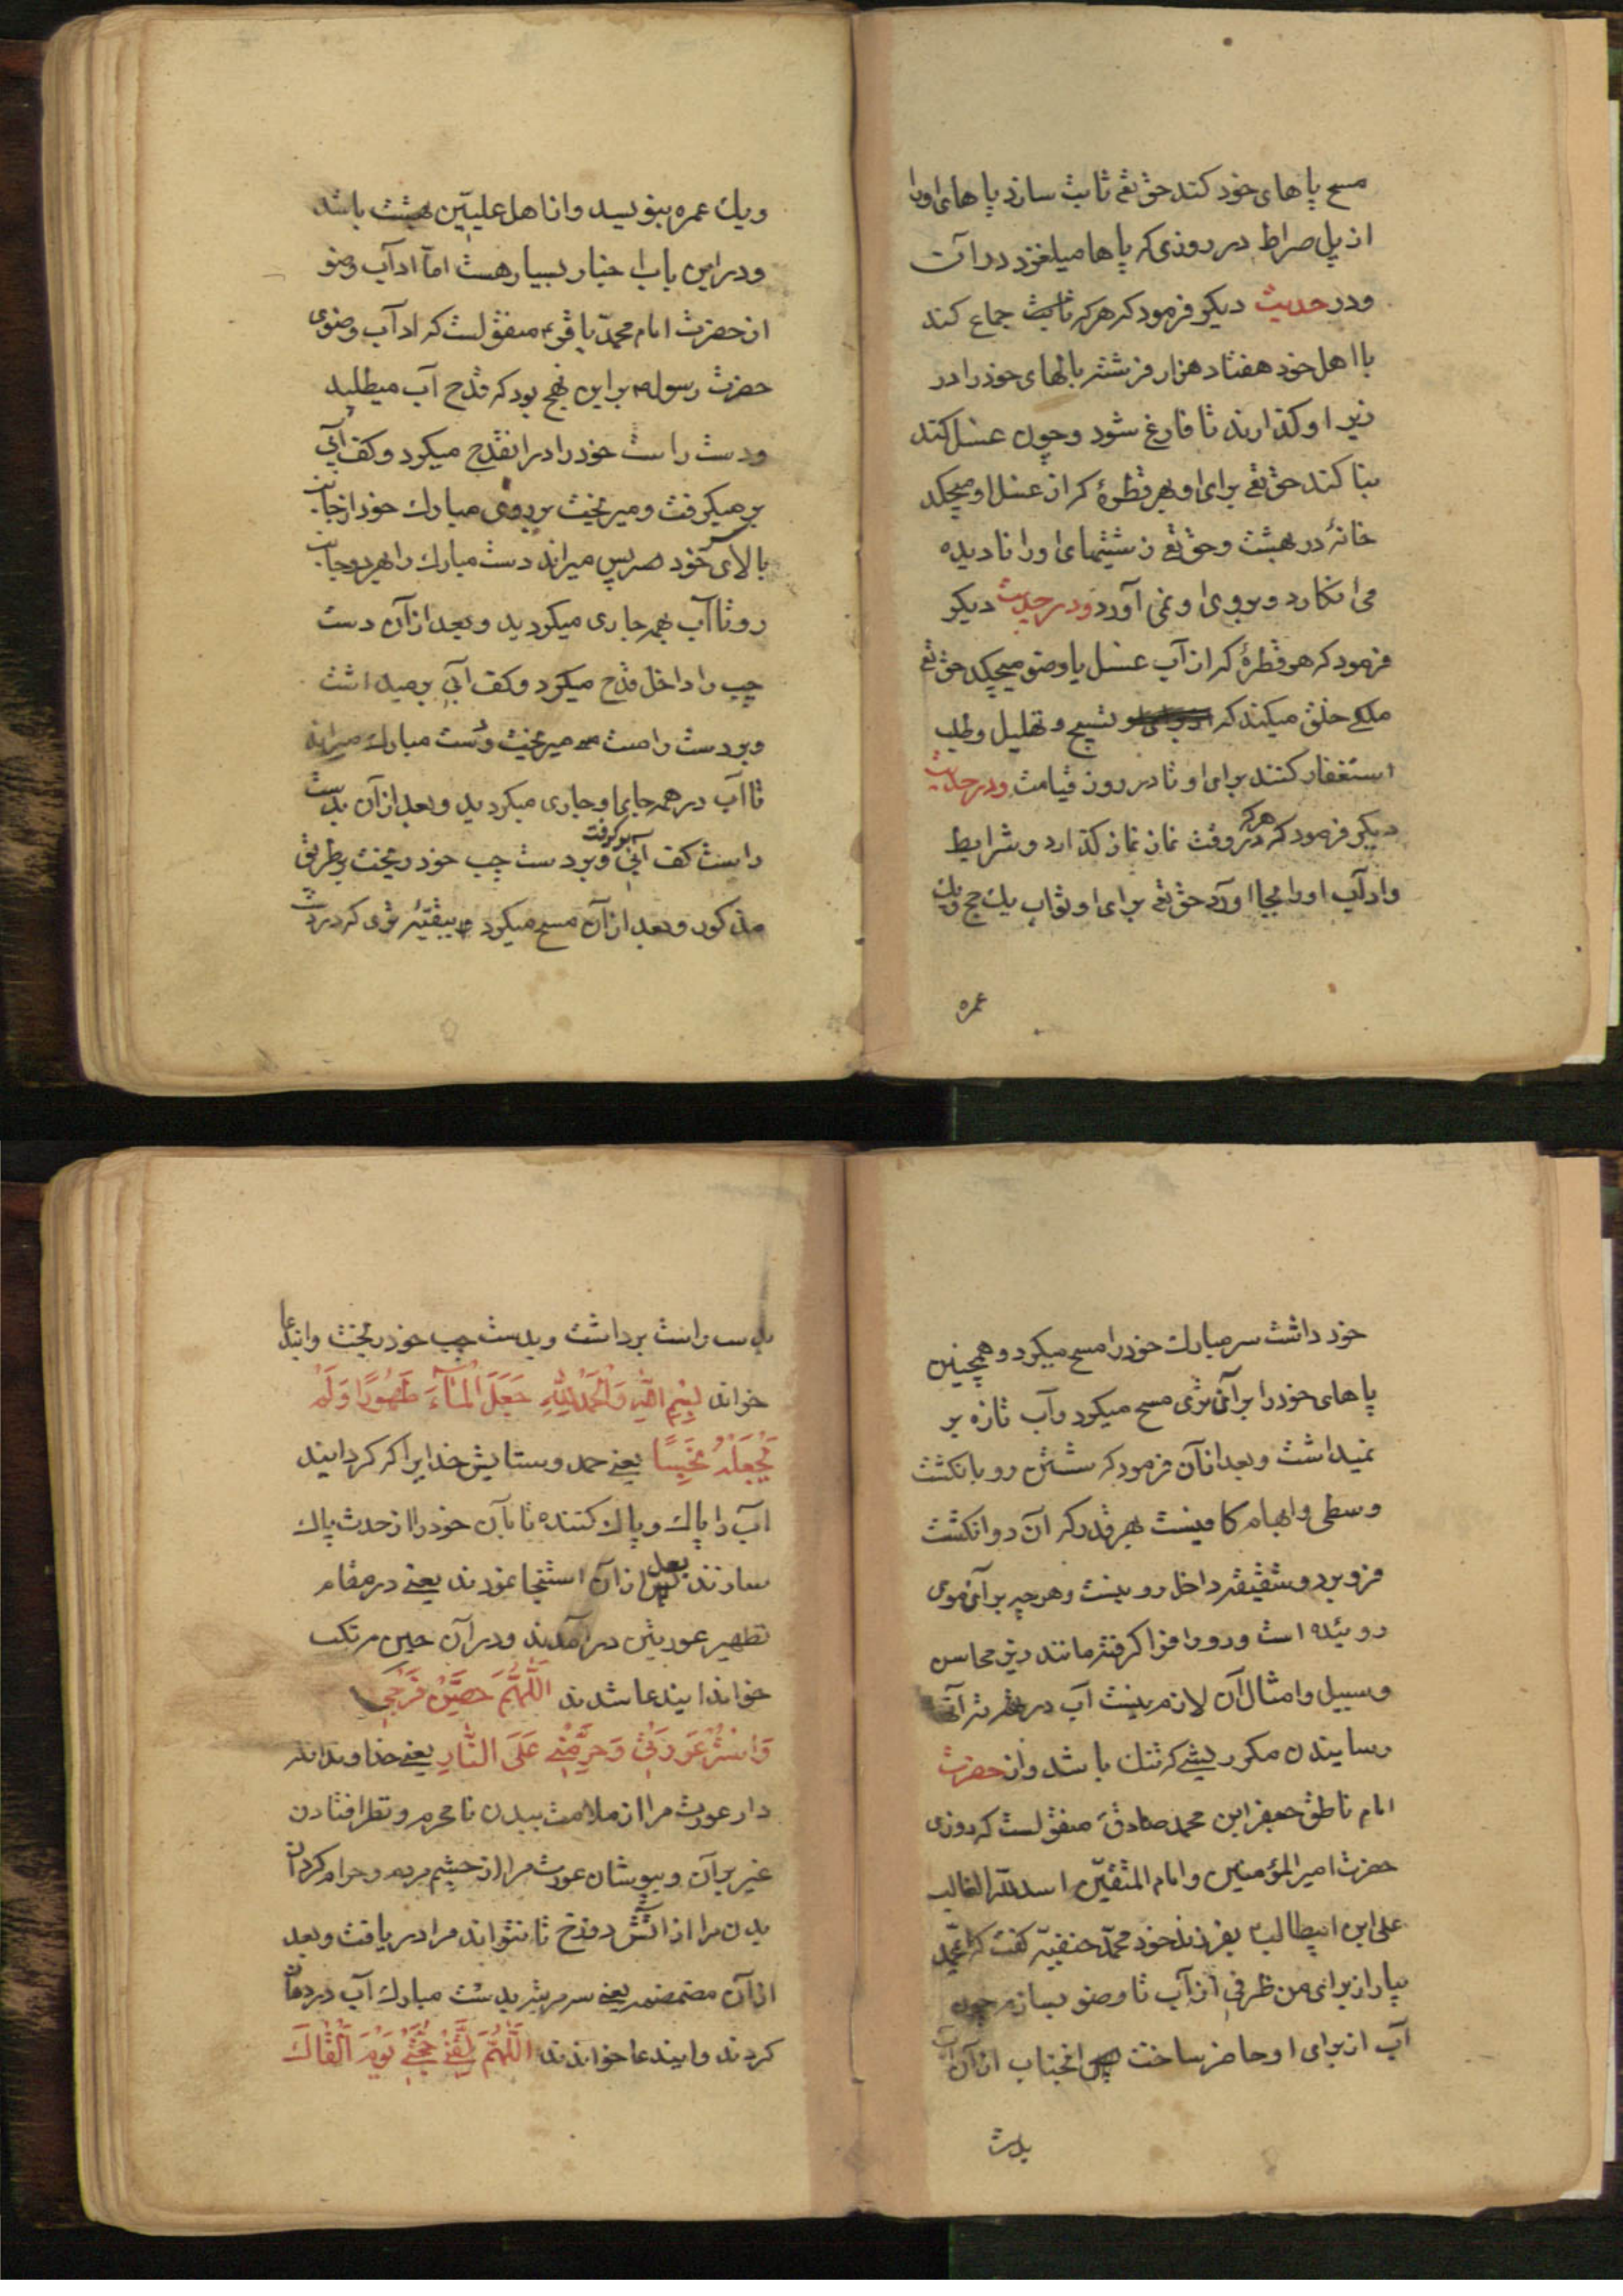 مسح پاهای خود کند حق تع ثابت سازد پاهای اورا
از پل صراط در روزی که پاها میلغزد در آن
ودر حدیث دیکر فرمود که هر که جماع کند
با اهل خود هفتاد هزار فرشته بالهای خود را در
زیر او کذارند تا فارغ شود و چون غسل کند
بنا کند حق تع برای او بهر قطرهٔ که از غسل او میچکد
خانهٔ در بهشت و حق تع زشتیهای اورا نادیده
می انکارد و بروی او نمی آورد ودر حدیث دیکر
فرمود که هر قطرهٔ که از آب غسل یا وضو میچکد حق تع
ملکی خلق میکند که تسبیح و تهلیل و طلب
استغفار کنند برای او تا در روز قیامت ودر حدیث
دیکر فرمود که هر که در وقت نماز نماز کذارد و شرایط
وادآب اورا بجا آورد حق تع برای او ثواب یك حج ویك
عمره
ویك عمره بنویسد و از اهل علیّین بهشت باشد
ودر این باب اخبار بسیار هست امّا ادآب وضو
از حضرت امام محمّد باقر ع منقولست که ادآب وضوی
حضرت رسول ص بر این نهج بود که قدح آب میطلبید
ودست راست خود را در انقدح میکرد و کف آبی
بر میکرفت و میریخت بر روی مبارك خود از جانب
بالای خود پس میراند دست مبارك را بهر دو جانب
رو تا آب بهمه جاری میکردید وبعد از آن دست
چپ را داخل قدح میکرد و کف آبی بر میداشت
وبر دست راست میریخت و دست مبارك میراند
تا آب در همه جا او جاری میکردید وبعد از آن بدست
راست کف آبی بر کرفت وبر دست چپ خود ریخت بطریق
مذکور وبعد از آن مسح میکرد ببقیّه تری که در دست
خود داشت سر مبارك خود را مسح میکرد و همچنین
پاهای خود را بر آن تری مسح میکرد وآب تازه بر
نمیداشت وبعد از آن فرمود که شستن رو بانکشت
وسطی وابهام کافیست بهر قدر که آن دو انکشت
فرو برد وشقیقه داخل رو نیست وهر چه بر آن موی
روئیده است ورو را فرا کرفته مانند ریش محاسن
وسبیل وامثال آن لازم نیست آب در ته آنها
رسانیدن مکر ریشی که تنك باشد واز حضرت
امام ناطق جعفر ابن محمد صادق ع منقولست که روزی
حضرت امیر المؤمنین وامام المتّقین اسد الله الغالب
علی ابن ابیطالب ع بفرزند خود محمّد حنفیّه کفت که ای محمّد
بیار از برای من ظرفی از آب تا وضو بسازم چون
آب از برای او حاضر ساخت انجناب از آن آب
بدست
بدست راست برداشت وبدست چپ خود ریخت واین دعا
خواند بِسْمِ اللّٰهِ وَالْحَمْدُ لِلّٰهِ جَعَلَ الْمَآءَ طَهُورًا وَلَمْ
یَجْعَلْهُ نَجِسًا یعنی حمد و ستایش خدایرا که کردانید
آب را پاك و پاك کننده تا بآن خود را از حدث پاك
سازند بعد از آن استنجا نمودند یعنی در مقام
تطهیر عورتین در آمدند ودر آن حین مرتکب
خواند ایندعا شدند اَللّٰهُمَّ حَصِّنْ فَرْجِی
وَاسْتُرْ عَوْرَتِی وَحَرِّمْنِی عَلَی النَّارِ یعنی خداوندا نکه
دار عورت مرا از ملامت بدیدن نا محرم ونظر افتادن
غیر بر آن وبپوشان عورت مرا از چشم مردم وحرام کردان
بدن مرا از آتش دوزخ تا نتواند مرا دریافت وبعد
از آن مضمضه یعنی سه مرتبه بدست مبارك آب در دهان
کردند وایندعا خواندند اَللّٰهُمَّ لَقِّنِی حُجَّتِی یَوْمَ اَلْقَاكَ